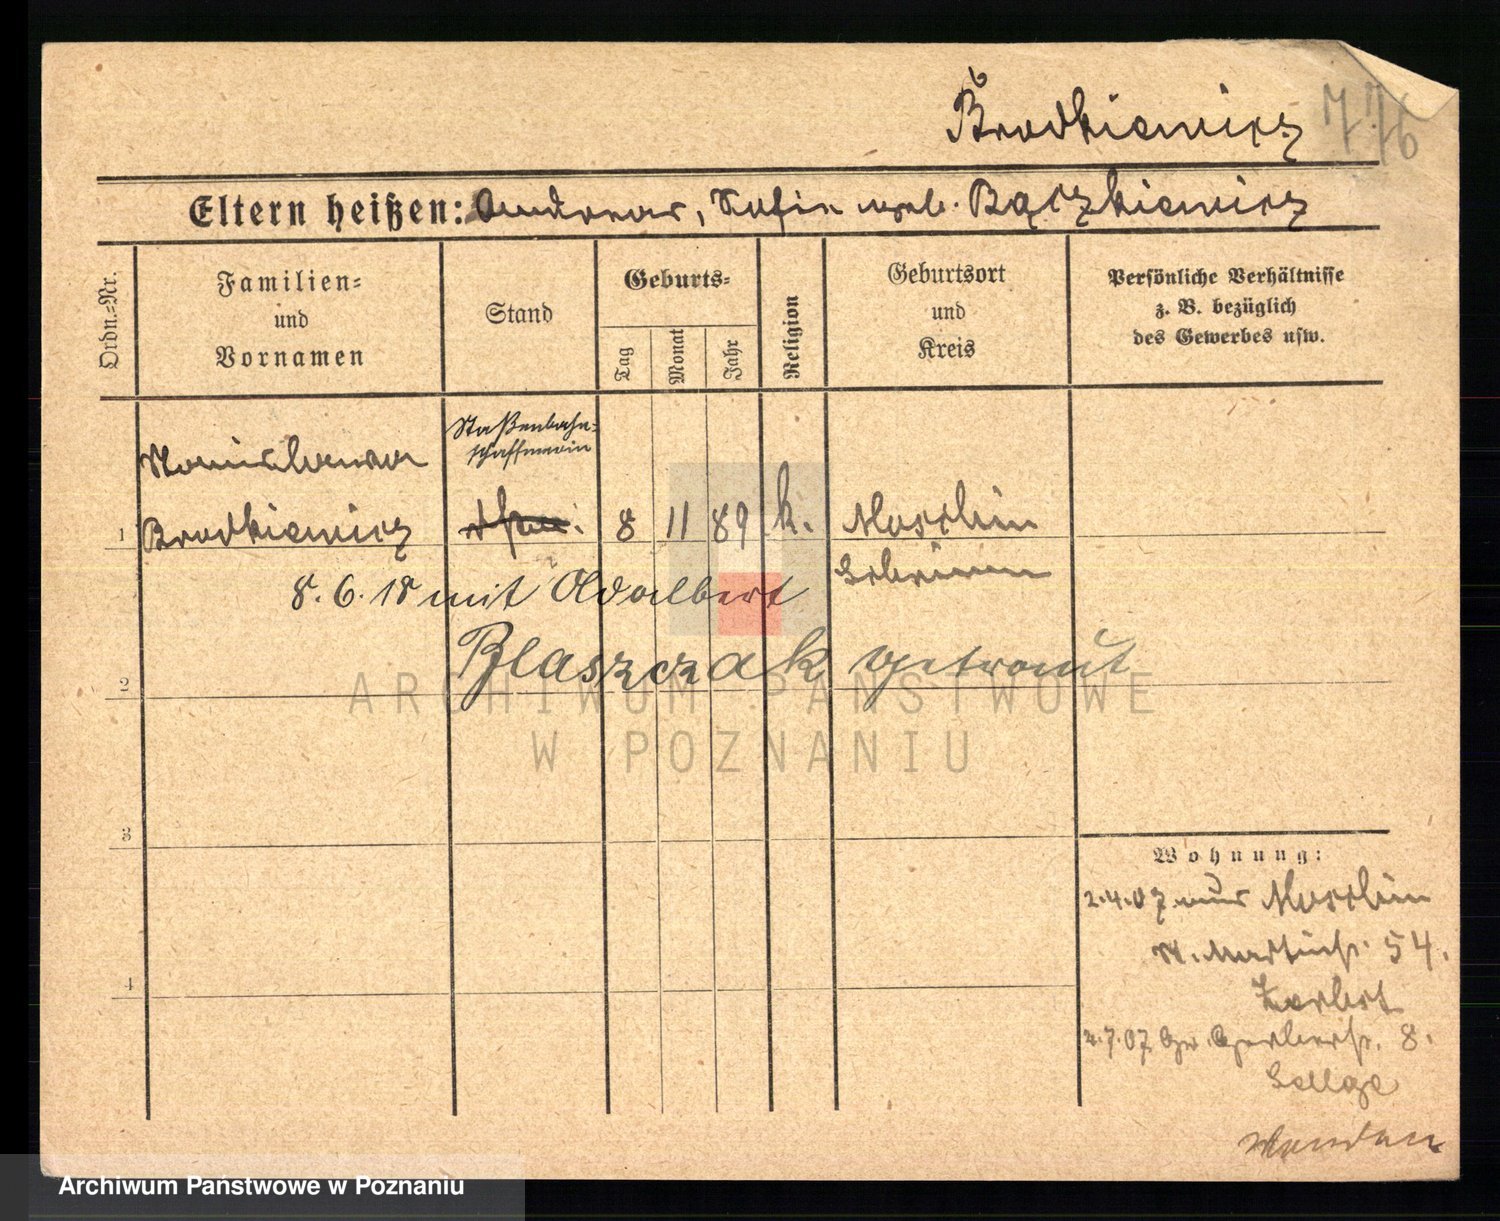 Brodkiewicz
776
Eltern heißen: Andreas, Sofie geb. Bączkiewicz
Ordn.-Nr.
Familien-
und
Vornamen
Stand
Geburts-
Tag
Monat
Jahr
Religion
Geburtsort
und
Kreis
Persönliche Verhältnisse
z. B. bezüglich
des Gewerbes usw.
Staßenbahn-
schaffnerin
Stanislawa
1 Brodkiewicz 8 11 89 k. Moschin
Schrimm
8. 6. 18 mit Adalbert
2 Blaszczak getraut
3
4
Wohnung:
2.4.07 aus Moschin
St. Martinstr. 54.
2.7.07 Gr. Gerberstr. 8.
Wenden
ARCHIWUM PAŃSTWOWE
W POZNANIU
Archiwum Państwowe w Poznaniu